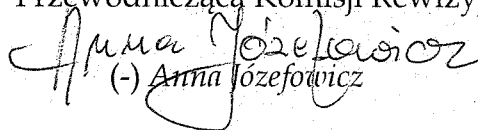 Przewodnicząca Komisji Rewizy
Anna Józefowicz
(-) Anna Józefowicz